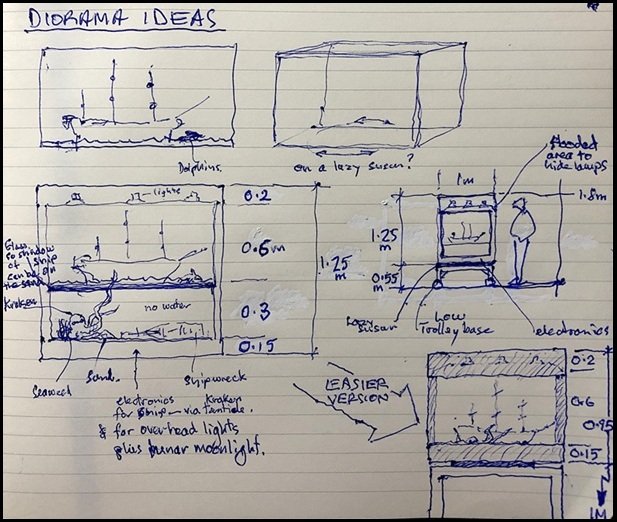 DIORAMA IDEAS
Dolphins.
on a lazy susan?
Hooded
area to
hide lamps
lights
0.2
0.6m
0.3
0.15
1.25
m
Glass
so shadow
of ship
can be on
the sand
Kraken
no water
Seaweed
Sand.
Shipwreck
electronics Kraken
for ship — via tentacle.
& for overhead lights
plus lunar moonlight.
1m
1.8m
1.25
m
0.55
m
Lazy
susan
Low
Trolley base
electronics
(EASIER
VERSION)
0.2
0.6
0.95
0.15
1M